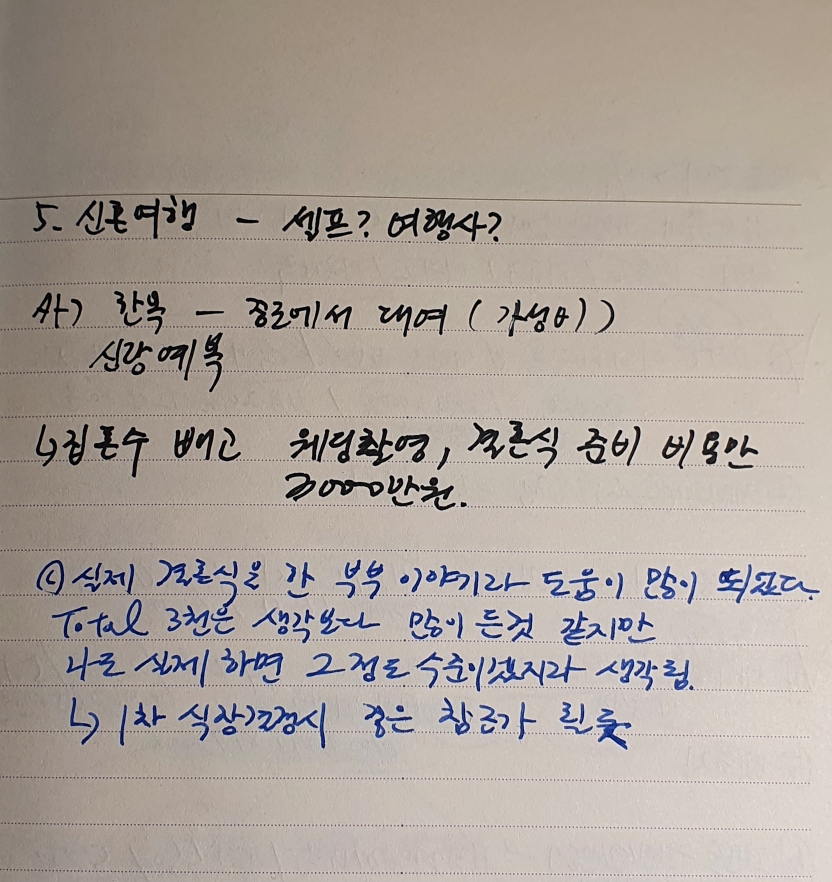 5. 신혼여행 - 셀프? 여행사?
사) 한복 - 종로에서 대여 (가성비)
신랑예복
↳ 집혼수 빼고 웨딩촬영, 결혼식 준비 비용만
3000만원.
ⓒ 실제 결혼식을 한 부부 이야기라 도움이 많이 되었다.
Total 3천은 생각보다 많이 든것 같지만
나도 실제 하면 그 정도 수준이겠지라 생각됨.
↳ 1차 식장결정시 좋은 참고가 될 듯